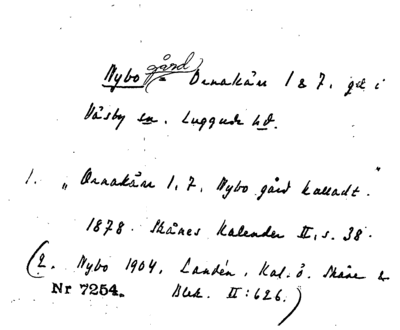 Nybo gård = Ornakärr 1 & 7, gd i
Väsby sn. Luggude hd.
1. „Ornakärr 1, 7, Nybo gård kalladt."
1878. Skånes Kalender II, s. 38.
(2. Nybo 1904. Landén, Kal. ö. Skåne &
Nr 7254. Blek. II:626.)